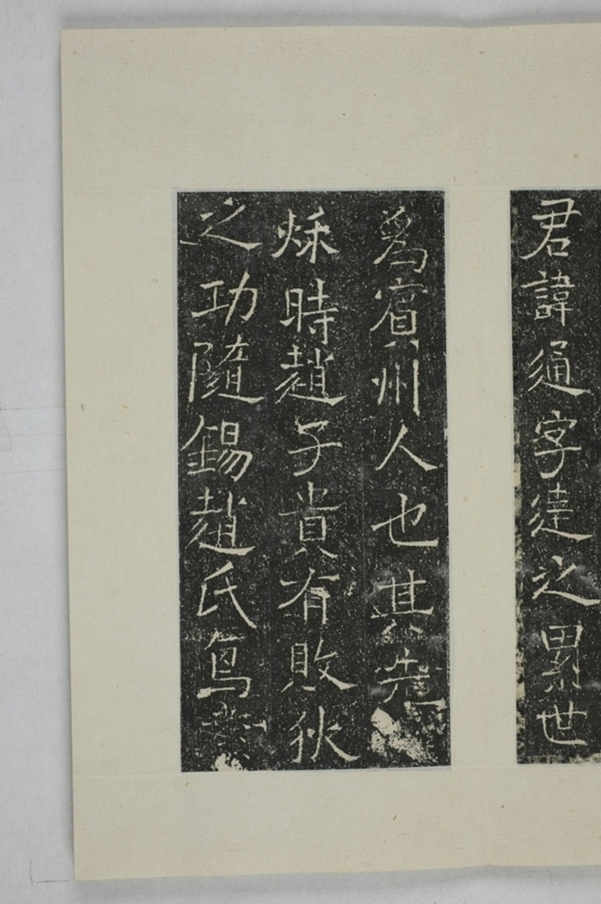 君諱通字達之累世
爲賓州人也其先
秌時趙子貴有敗狄
之功隨錫趙氏焉